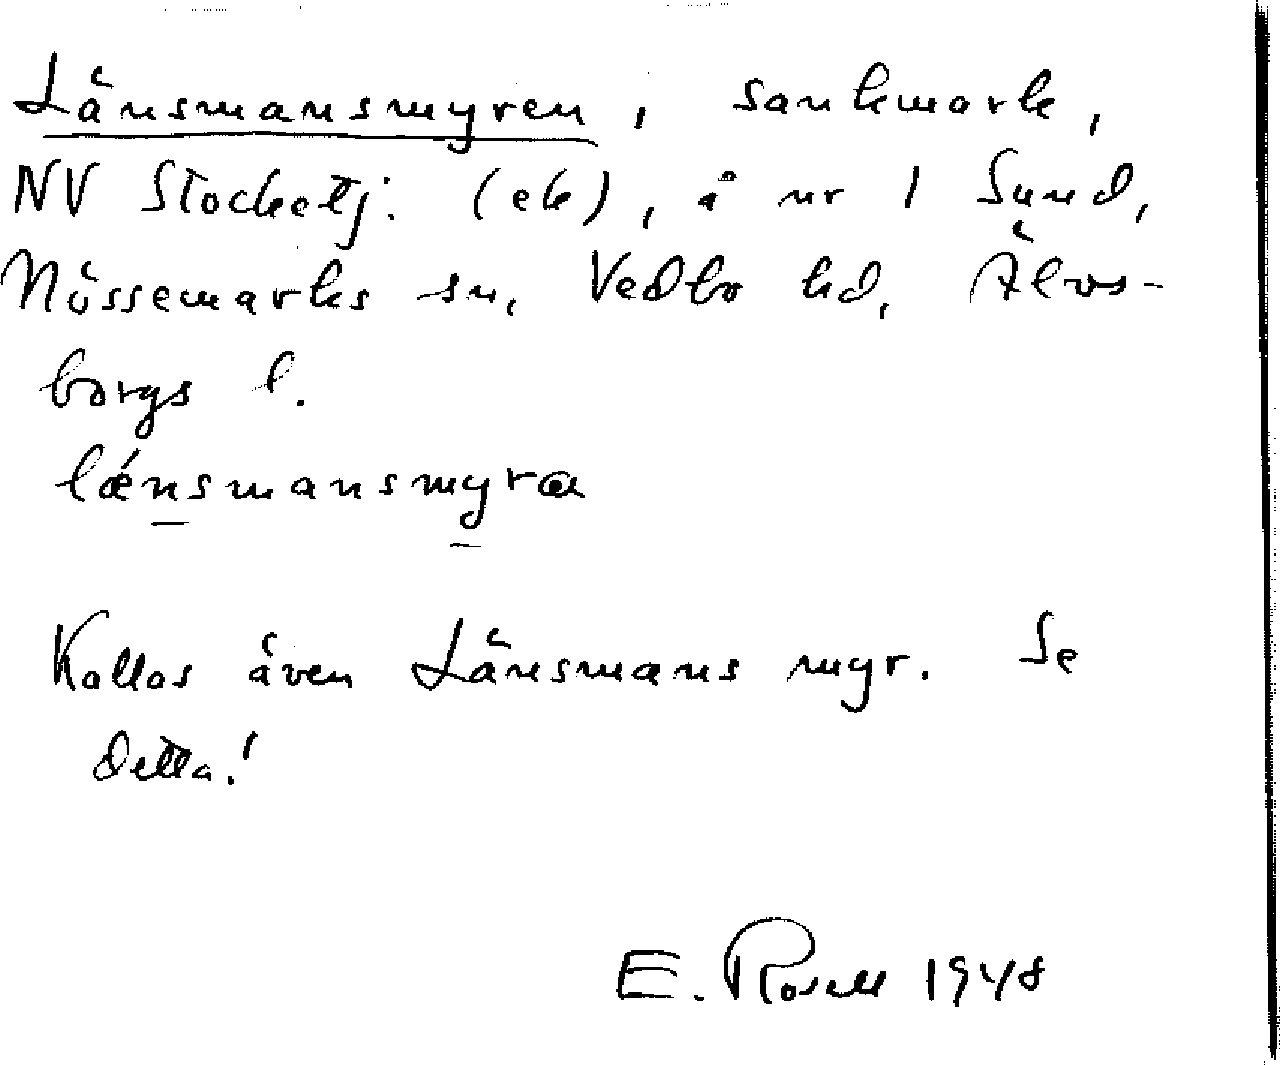 Länsmansmyren, sankmark,
NV Stocketj: (ek), å nr 1 Sund,
Nössemarks sn, Vedbo hd, Älvs-
borgs l.
lǽnsmansmyra
Kallas även Länsmans myr. Se
detta!
E. Rosell 1948